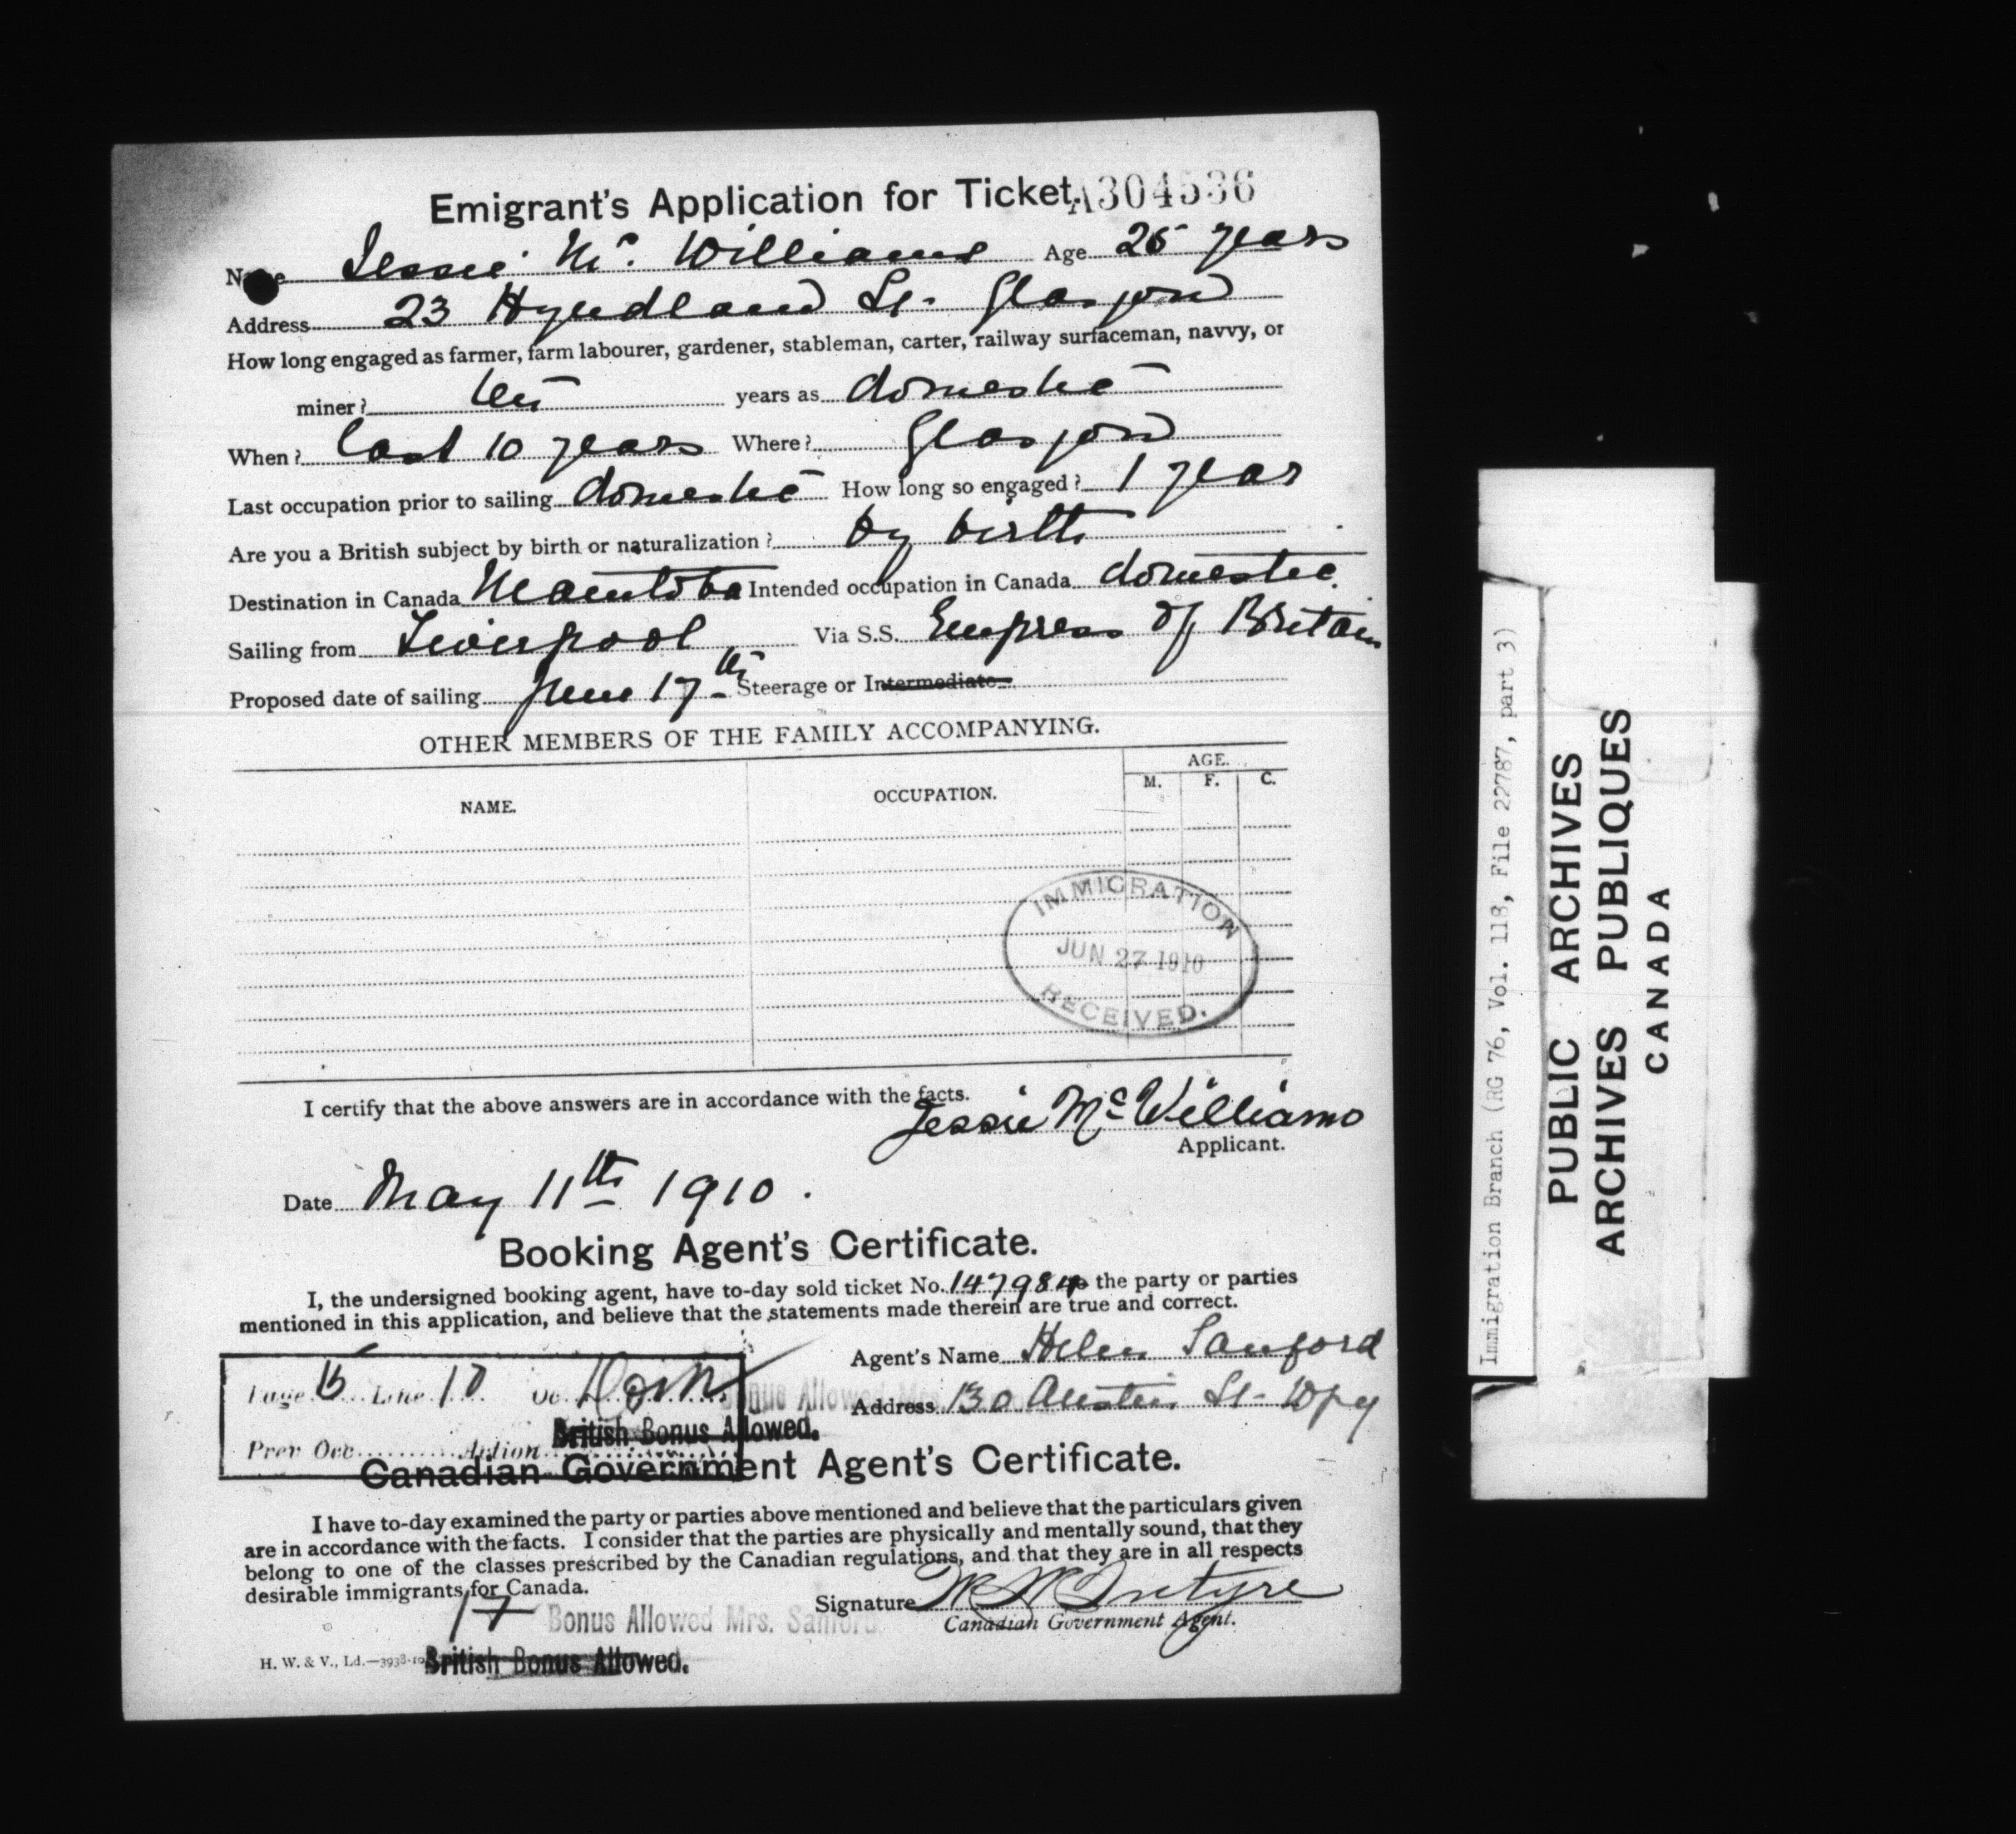 Emigrant's Application for Ticket. A304536
Name Jessie Mc. Williams Age 25 years
Address 23 Hyndland St. Glasgow
How long engaged as farmer, farm labourer, gardener, stableman, carter, railway surfaceman, navvy, or
miner? ten years as domestic
When? last 10 years Where? Glasgow
Last occupation prior to sailing domestic How long so engaged? 1 year
Are you a British subject by birth or naturalization? by birth
Destination in Canada Manitoba Intended occupation in Canada domestic
Sailing from Liverpool Via S.S. Empress of Britain
Proposed date of sailing June 17th Steerage or Intermediate
OTHER MEMBERS OF THE FAMILY ACCOMPANYING.
NAME. OCCUPATION. AGE.
M. F. C.
IMMIGRATION
JUN 27 1910
RECEIVED.
I certify that the above answers are in accordance with the facts.
Jessie McWilliams
Applicant.
Date May 11th 1910.
Booking Agent's Certificate.
I, the undersigned booking agent, have to-day sold ticket No. 147984 to the party or parties
mentioned in this application, and believe that the statements made therein are true and correct.
Agent's Name Helen Sanford
Page Line 10 Oc. Dom Bonus Allowed Mrs.
Address 130 Austin St. Wpg
British Bonus Allowed.
Prev Occ. Action
Canadian Government Agent's Certificate.
I have to-day examined the party or parties above mentioned and believe that the particulars given
are in accordance with the facts. I consider that the parties are physically and mentally sound, that they
belong to one of the classes prescribed by the Canadian regulations, and that they are in all respects
desirable immigrants for Canada.
Signature
Canadian Government Agent.
17 Bonus Allowed Mrs. Sanford
H. W. & V., Ld.—3938-10
British Bonus Allowed.
Immigration Branch (RG 76, Vol. 118, File 22787, part 3)
PUBLIC ARCHIVES
ARCHIVES PUBLIQUES
CANADA